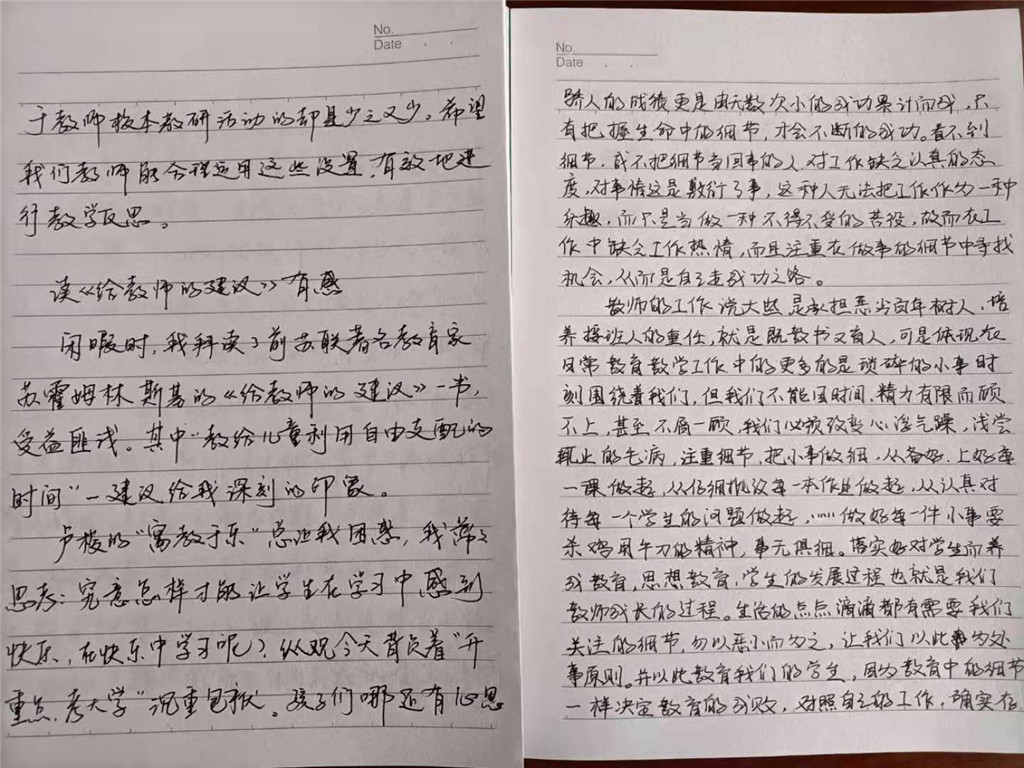 No.
Date
于教师校本教研活动的却是少之又少。希望
我们教师能合理运用这些设置,有效地进
行教学反思。
读《给教师的建议》有感
闲暇时,我拜读了前苏联著名教育家
苏霍姆林斯基的《给教师的建议》一书,
受益匪浅。其中"教给儿童利用自由支配的
时间"一建议给我深刻的印象。
卢梭的"寓教于乐"总让我困惑,我常常
思考:究竟怎样才能让学生在学习中感到
快乐,在快乐中学习呢?纵观今天背负着"升
重点,考大学"沉重包袱。孩子们哪还有心思
No.
Date
骄人的成绩更是由无数次小的成功累计而成,只
有把握生命中的细节,才会不断的成功。看不到
细节,或不把细节当回事的人,对工作缺乏认真的态
度,对事情这是敷衍了事,这种人无法把工作作为一种
乐趣,而只是当做一种不得不受的苦役,故而在工
作中缺乏工作热情,而且注重在做事的细节中寻找
机会,从而是自己走成功之路。
教师的工作说大些是承担悉当百年树人,培
养接班人的重任,就是既教书又育人,可是体现在
日常教育教学工作中的更多的是琐碎的小事时
刻围绕着我们,但我们不能因时间,精力有限而顾
不上,甚至不屑一顾,我们必须改变心浮气躁,浅尝
辄止的毛病,注重细节,把小事做细,从备好,上好每
一课做起,从仔细批改每一本作业做起,从认真对
待每一个学生的问题做起,……做好每一件小事要
杀鸡用牛刀的精神,事无俱细。落实好对学生而养
成教育,思想教育,学生的发展过程也就是我们
教师成长的过程。生活的点点滴滴都有需要我们
关注的细节,勿以恶小而为之,让我们以此为处
事原则。并以此教育我们的学生,因为教育中的细节
一样决定教育的成败,对照自己的工作,确实存